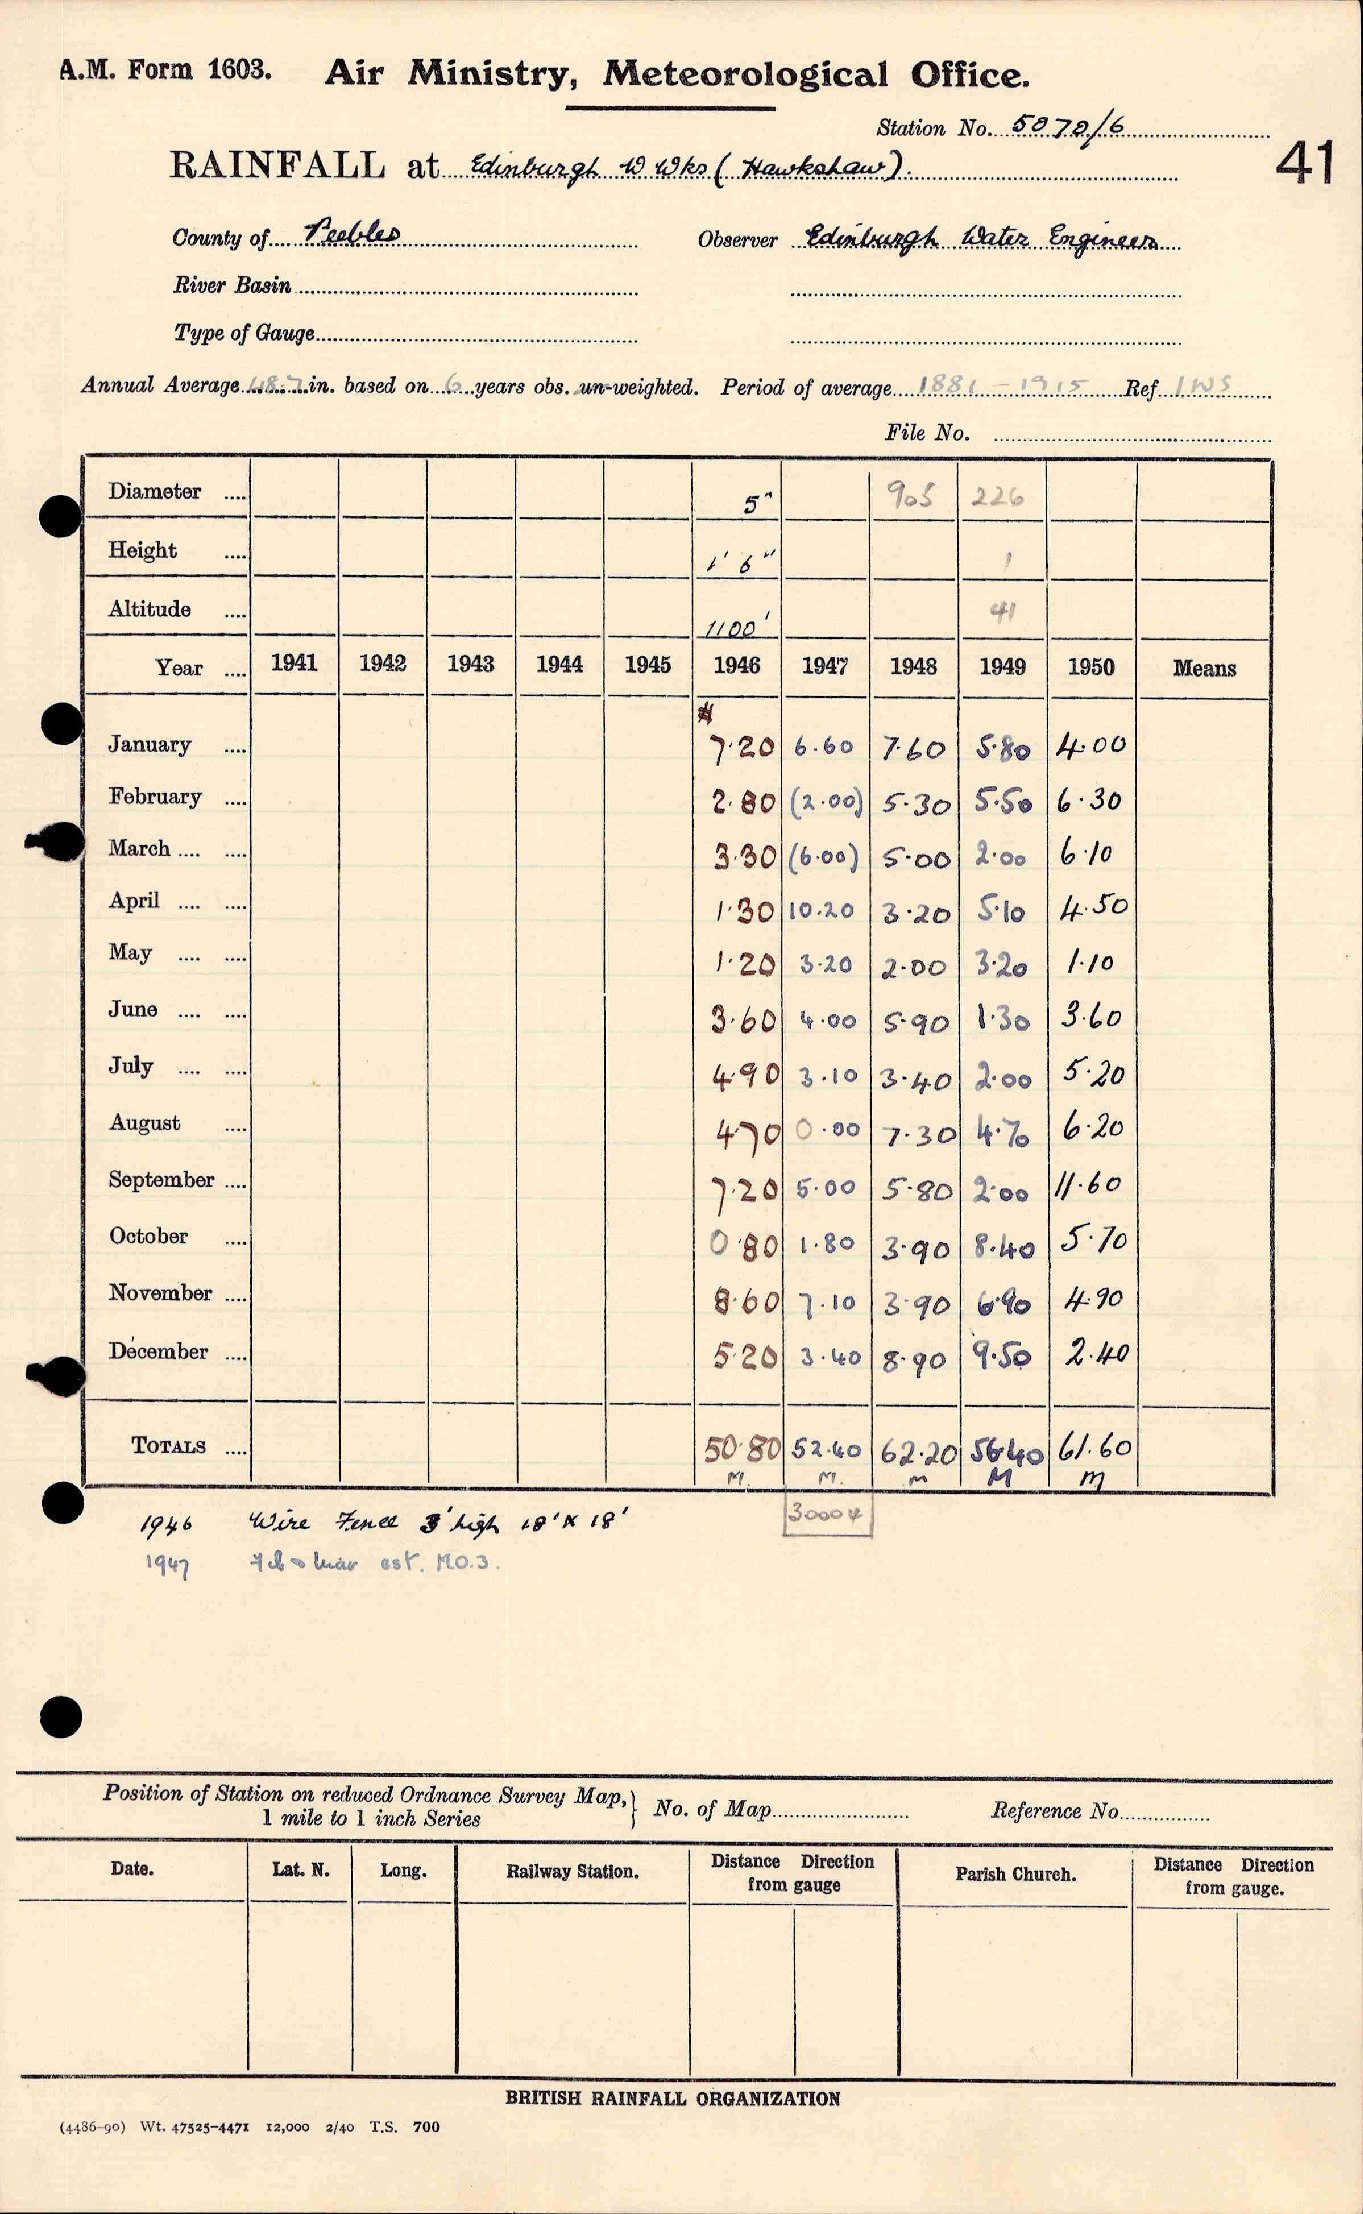 A.M. Form 1603. Air Ministry, Meteorological Office.
Station No. 5070/6
41
RAINFALL at Edinburgh W Wks (Hawkshaw).
County of Peebles Observer Edinburgh Water Engineer
River Basin
Type of Gauge
Annual Average 48.7 in. based on 6 years obs. un-weighted. Period of average 1881 - 1915 Ref IWS
File No.
Diameter .... 5" 905 226
Height .... 1' 6" 1
Altitude .... 1100' 41
Year .... 1941 1942 1943 1944 1945 1946 1947 1948 1949 1950 Means
January .... 7.20 6.60 7.60 5.80 4.00
February .... 2.80 (2.00) 5.30 5.50 6.30
March .... .... 3.30 (6.00) 5.00 2.00 6.10
April .... .... 1.30 10.20 3.20 5.10 4.50
May .... .... 1.20 3.20 2.00 3.20 1.10
June .... .... 3.60 4.00 5.90 1.30 3.60
July .... .... 4.90 3.10 3.40 2.00 5.20
August .... 4.70 0.00 7.30 4.70 6.20
September .... 7.20 5.00 5.80 2.00 11.60
October .... 0.80 1.80 3.90 8.40 5.70
November .... 8.60 7.10 3.90 6.90 4.90
December .... 5.20 3.40 8.90 9.50 2.40
TOTALS .... 50.80 52.40 62.20 56.40 61.60
M. M. M M M
30004
1946 Wire Fence 3' high 18' x 18'
1947 Feb & Mar est. M.O.3.
Position of Station on reduced Ordnance Survey Map, } No. of Map Reference No.
1 mile to 1 inch Series
Date. Lat. N. Long. Railway Station. Distance Direction from gauge Parish Church. Distance Direction from gauge.
BRITISH RAINFALL ORGANIZATION
(4486-90) Wt. 47525-4471 12,000 2/40 T.S. 700